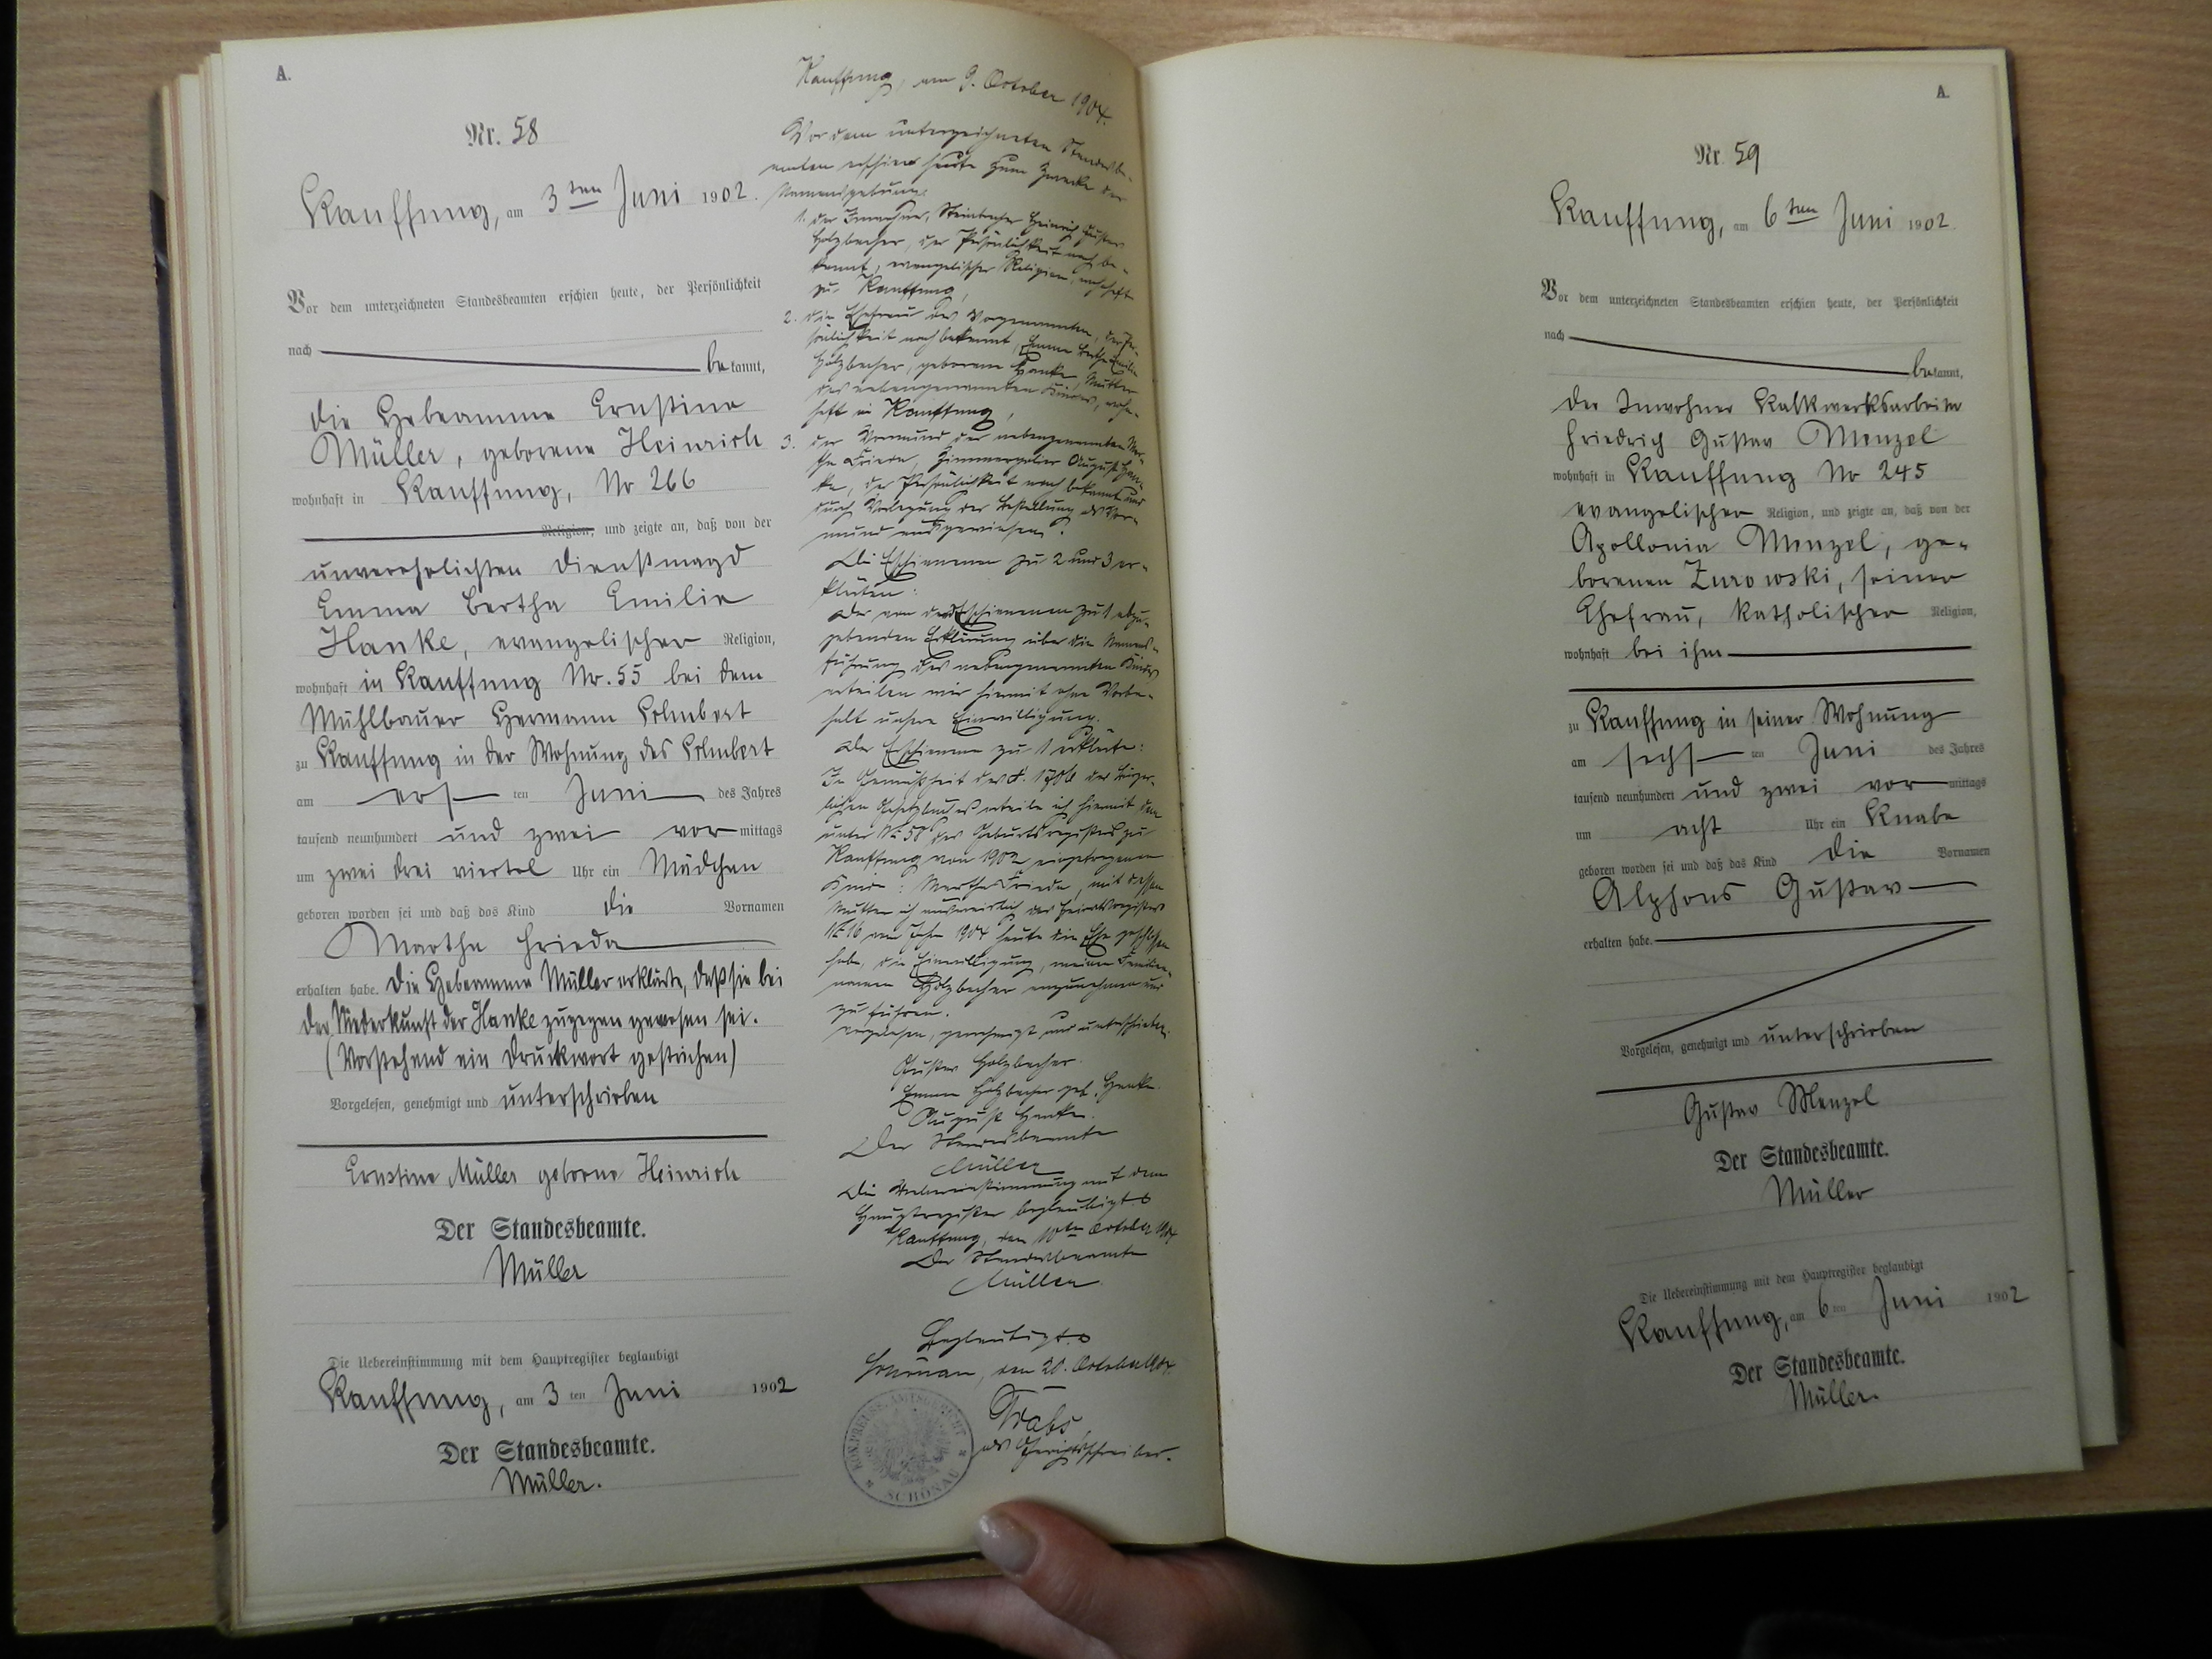 A.
Nr. 58
Kauffung, am 3ten Juni 1902.
Vor dem unterzeichneten Standesbeamten erschien heute, der Persönlichkeit
nach be kannt,
die Hebeamme Ernstine
Müller, geborene Heinrich
wohnhaft in Kauffung, No 266
Religion, und zeigte an, daß von der
unverehelichten Dienstmagd
Emma Bertha Emilie
Hanke, evangelischer Religion,
wohnhaft in Kauffung No. 55 bei dem
Mühlbauer Hermann
zu Kauffung in der Wohnung des
am ers ten Juni des Jahres
tausend neunhundert und zwei vor mittags
um zwei drei viertel Uhr ein Mädchen
geboren worden sei und daß das Kind die Vornamen
Martha Frieda
erhalten habe. Die Hebeamme Müller erklärte, daß sie bei
der Niederkunft der Hanke zugegen gewesen sei.
(Vorstehend ein Druckwort gestrichen)
Vorgelesen, genehmigt und unterschrieben
Ernstine Müller geborne Heinrich
Der Standesbeamte.
Müller
Die Uebereinstimmung mit dem Hauptregister beglaubigt
Kauffung, am 3 ten Juni 1902
Der Standesbeamte.
Müller.
Kauffung, am 9. October 1904.
Vor dem unterzeichneten Standesbe-
amten erschien heute zum Zwecke der
Namensgebung
1. der Inwohner, Steinbrecher Heinrich Gustav
Holzbecher, der Persönlichkeit nach be-
kannt, evangelischer Religion, wohnhaft
zu Kauffung,
2. die Ehefrau des Vorgenannten, der Per-
sönlichkeit nach bekannt, Emma Bertha Emilie
Holzbecher, geborene Hanke, Mutter
des nebengenannten Kindes, wohn-
haft in Kauffung,
3. der Vormund der nebengenannten Mar-
tha Frieda, Zimmerpolier August Han-
ke, der Persönlichkeit nach bekannt und
durch Vorlegung der Bestallung als Vor-
mund ausgewiesen.
Die Erschienenen zu 2 und 3 er-
klärten:
Der von dem Erschienenen zu 1 abzu-
gebenden Erklärung über die Namens-
führung des nebengenannten Kindes
erteilen wir hiermit ohne Vorbe-
halt unsere Einwilligung.
Der Erschienene zu 1 erklärte:
In Gemäßheit des §. 1706 des Bürger-
lichen Gesetzbuches erteile ich hiermit dem
unter No 58 des Geburtsregisters zu
Kauffung von 1902 eingetragenen
Kinde: Martha Frieda, mit dessen
Mutter ich ausweislich des Heiratsregisters
No 16 vom Jahre 1904 heute die Ehe geschlossen
habe, die Einwilligung, meinen Familien-
namen Holzbecher anzunehmen und
zu führen.
vorgelesen, genehmigt und unterschrieben.
Gustav Holzbecher.
Emma Holzbecher geb. Hanke.
August Hanke.
Der Standesbeamte
Müller
Die Uebereinstimmung mit dem
Hauptregister beglaubigt
Kauffung, den 10ten October 1904
Der Standesbeamte
Müller.
Beglaubigt
Schönau, den 20. October 1904.
als Gerichtsschreiber.
KÖN. PREUSS. AMTSGERICHT
SCHÖNAU
A.
Nr. 59
Kauffung, am 6ten Juni 1902.
Vor dem unterzeichneten Standesbeamten erschien heute, der Persönlichkeit
nach be kannt,
der Inwohner Kalkwerksarbeiter
Friedrich Gustav Menzel
wohnhaft in Kauffung No 245
evangelischer Religion, und zeigte an, daß von der
Apollonia Menzel, ge-
borenen Zurowski, seiner
Ehefrau, katholischer Religion,
wohnhaft bei ihm
zu Kauffung in seiner Wohnung
am sechs ten Juni des Jahres
tausend neunhundert und zwei vor mittags
um acht Uhr ein Knabe
geboren worden sei und daß das Kind die Vornamen
Alphons Gustav
erhalten habe.
Vorgelesen, genehmigt und unterschrieben
Gustav Menzel
Der Standesbeamte.
Müller
Die Uebereinstimmung mit dem Hauptregister beglaubigt
Kauffung, am 6 ten Juni 1902
Der Standesbeamte.
Müller.